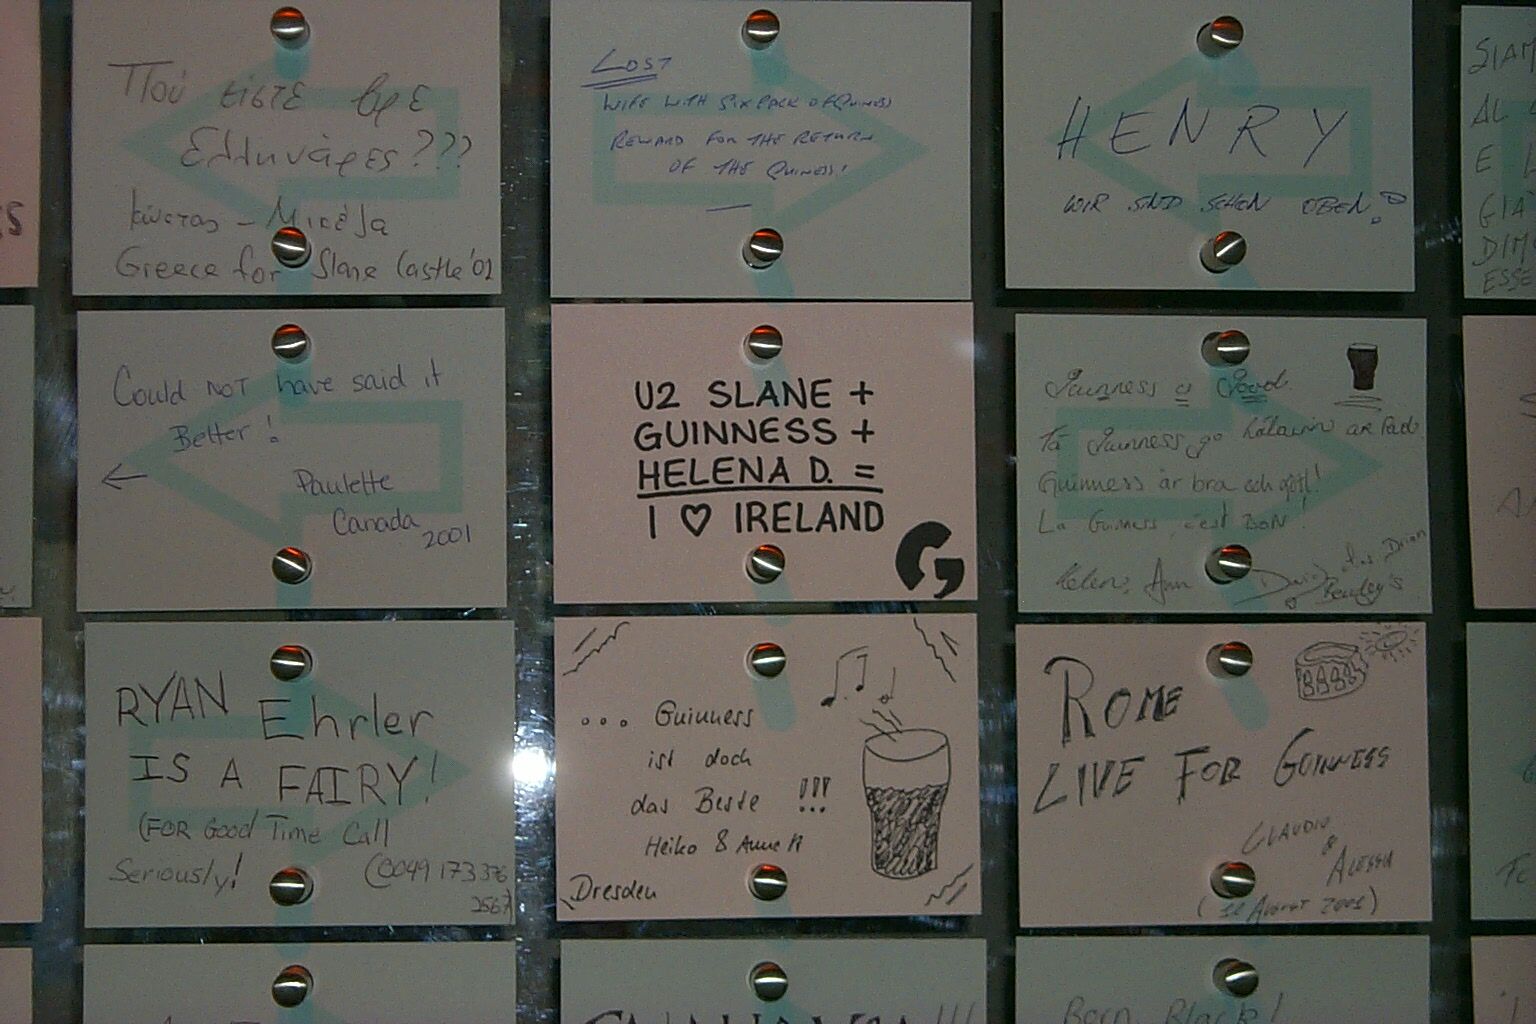 Πού είστε βρε
Ελληνάρες???
Κώστας - Μικέλα
Greece for Slane Castle '01
LOST
WIFE WITH SIX PACK OF QUINESS
REWARD FOR THE RETURN
OF THE QUINESS!
HENRY
WIR SIND SCHON OBEN!
SIAM
AL
E
GIA
DIM
ESSE
Could NOT have said it
Better!
←
Paulette
Canada
2001
U2 SLANE +
GUINNESS +
HELENA D. =
I ♡ IRELAND
G
Guinness is Good.
Tá Guinness go hálainn ar fad.
Guinness är bra och gott!
La Guinness, c'est BON!
Helen, Ann
RYAN Ehrler
IS A FAIRY!
(FOR Good Time Call
Seriously!
(0049 173 376
2567)
... Guinness
ist doch
das Beste !!!
Heiko & Annett
Dresden
ROME
LIVE FOR GUINNESS
CLAUDIO
&
ALESSIA
AUGUST 2001)
Born Black!